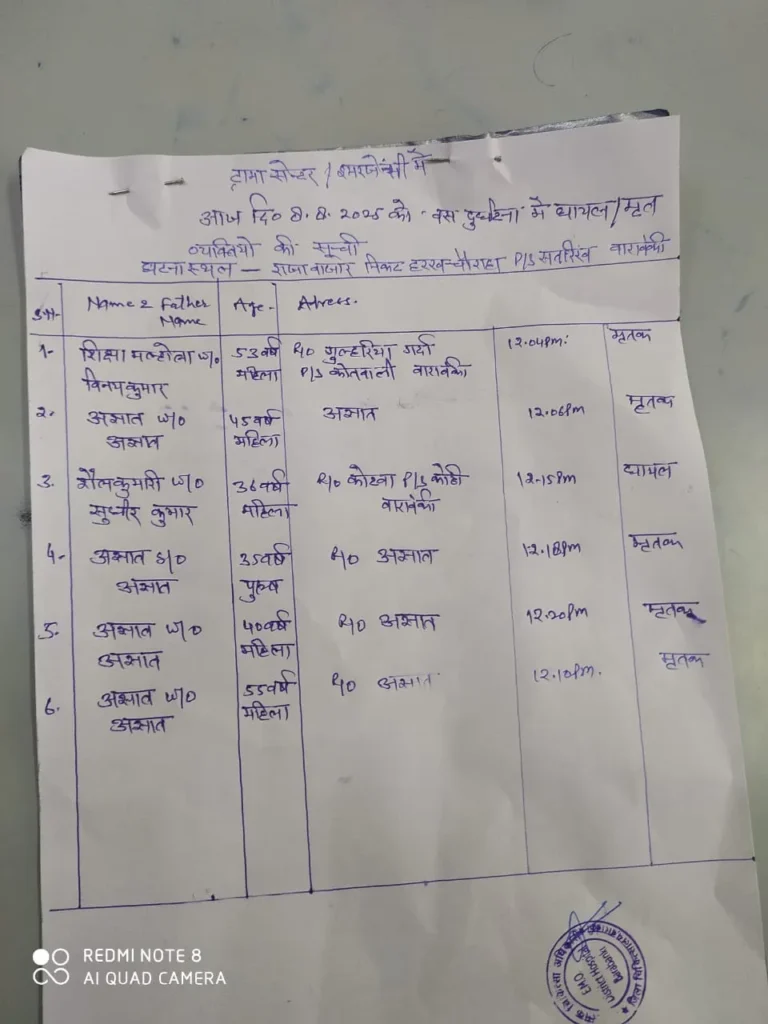 ट्रामा सेन्टर / इमरजेन्सी में
आज दि० 8.8.2025 को बस दुर्घटना में घायल/मृत
व्यक्तियो की सूची
घटनास्थल - राजाबाजार निकट हरख चौराहा P/S सतरिख बाराबंकी
S.N- Name & Father Name Age- Adress.
1- शिक्षा मल्होत्रा W/o 53 वर्ष R/o गुल्हरिया गार्दा 12.04 Pm. मृतक
विनयकुमार महिला P/S कोतवाली बाराबंकी
2. अज्ञात W/o 45 वर्ष अज्ञात 12.06 Pm मृतक
अज्ञात महिला
3. शैलकुमारी W/o 36 वर्ष R/o कोठवा P/S कोठी 12-15 Pm घायल
सुधीर कुमार महिला बाराबंकी
4- अज्ञात S/o 35 वर्ष R/o अज्ञात 12.18 Pm मृतक
अज्ञात पुरुष
5. अज्ञात W/o 40 वर्ष R/o अज्ञात 12.20 Pm मृतक
अज्ञात महिला
6. अज्ञात W/o 55 वर्ष R/o अज्ञात 12.10 Pm. मृतक
अज्ञात महिला
EMO
District Hospital
Barabanki
REDMI NOTE 8
AI QUAD CAMERA